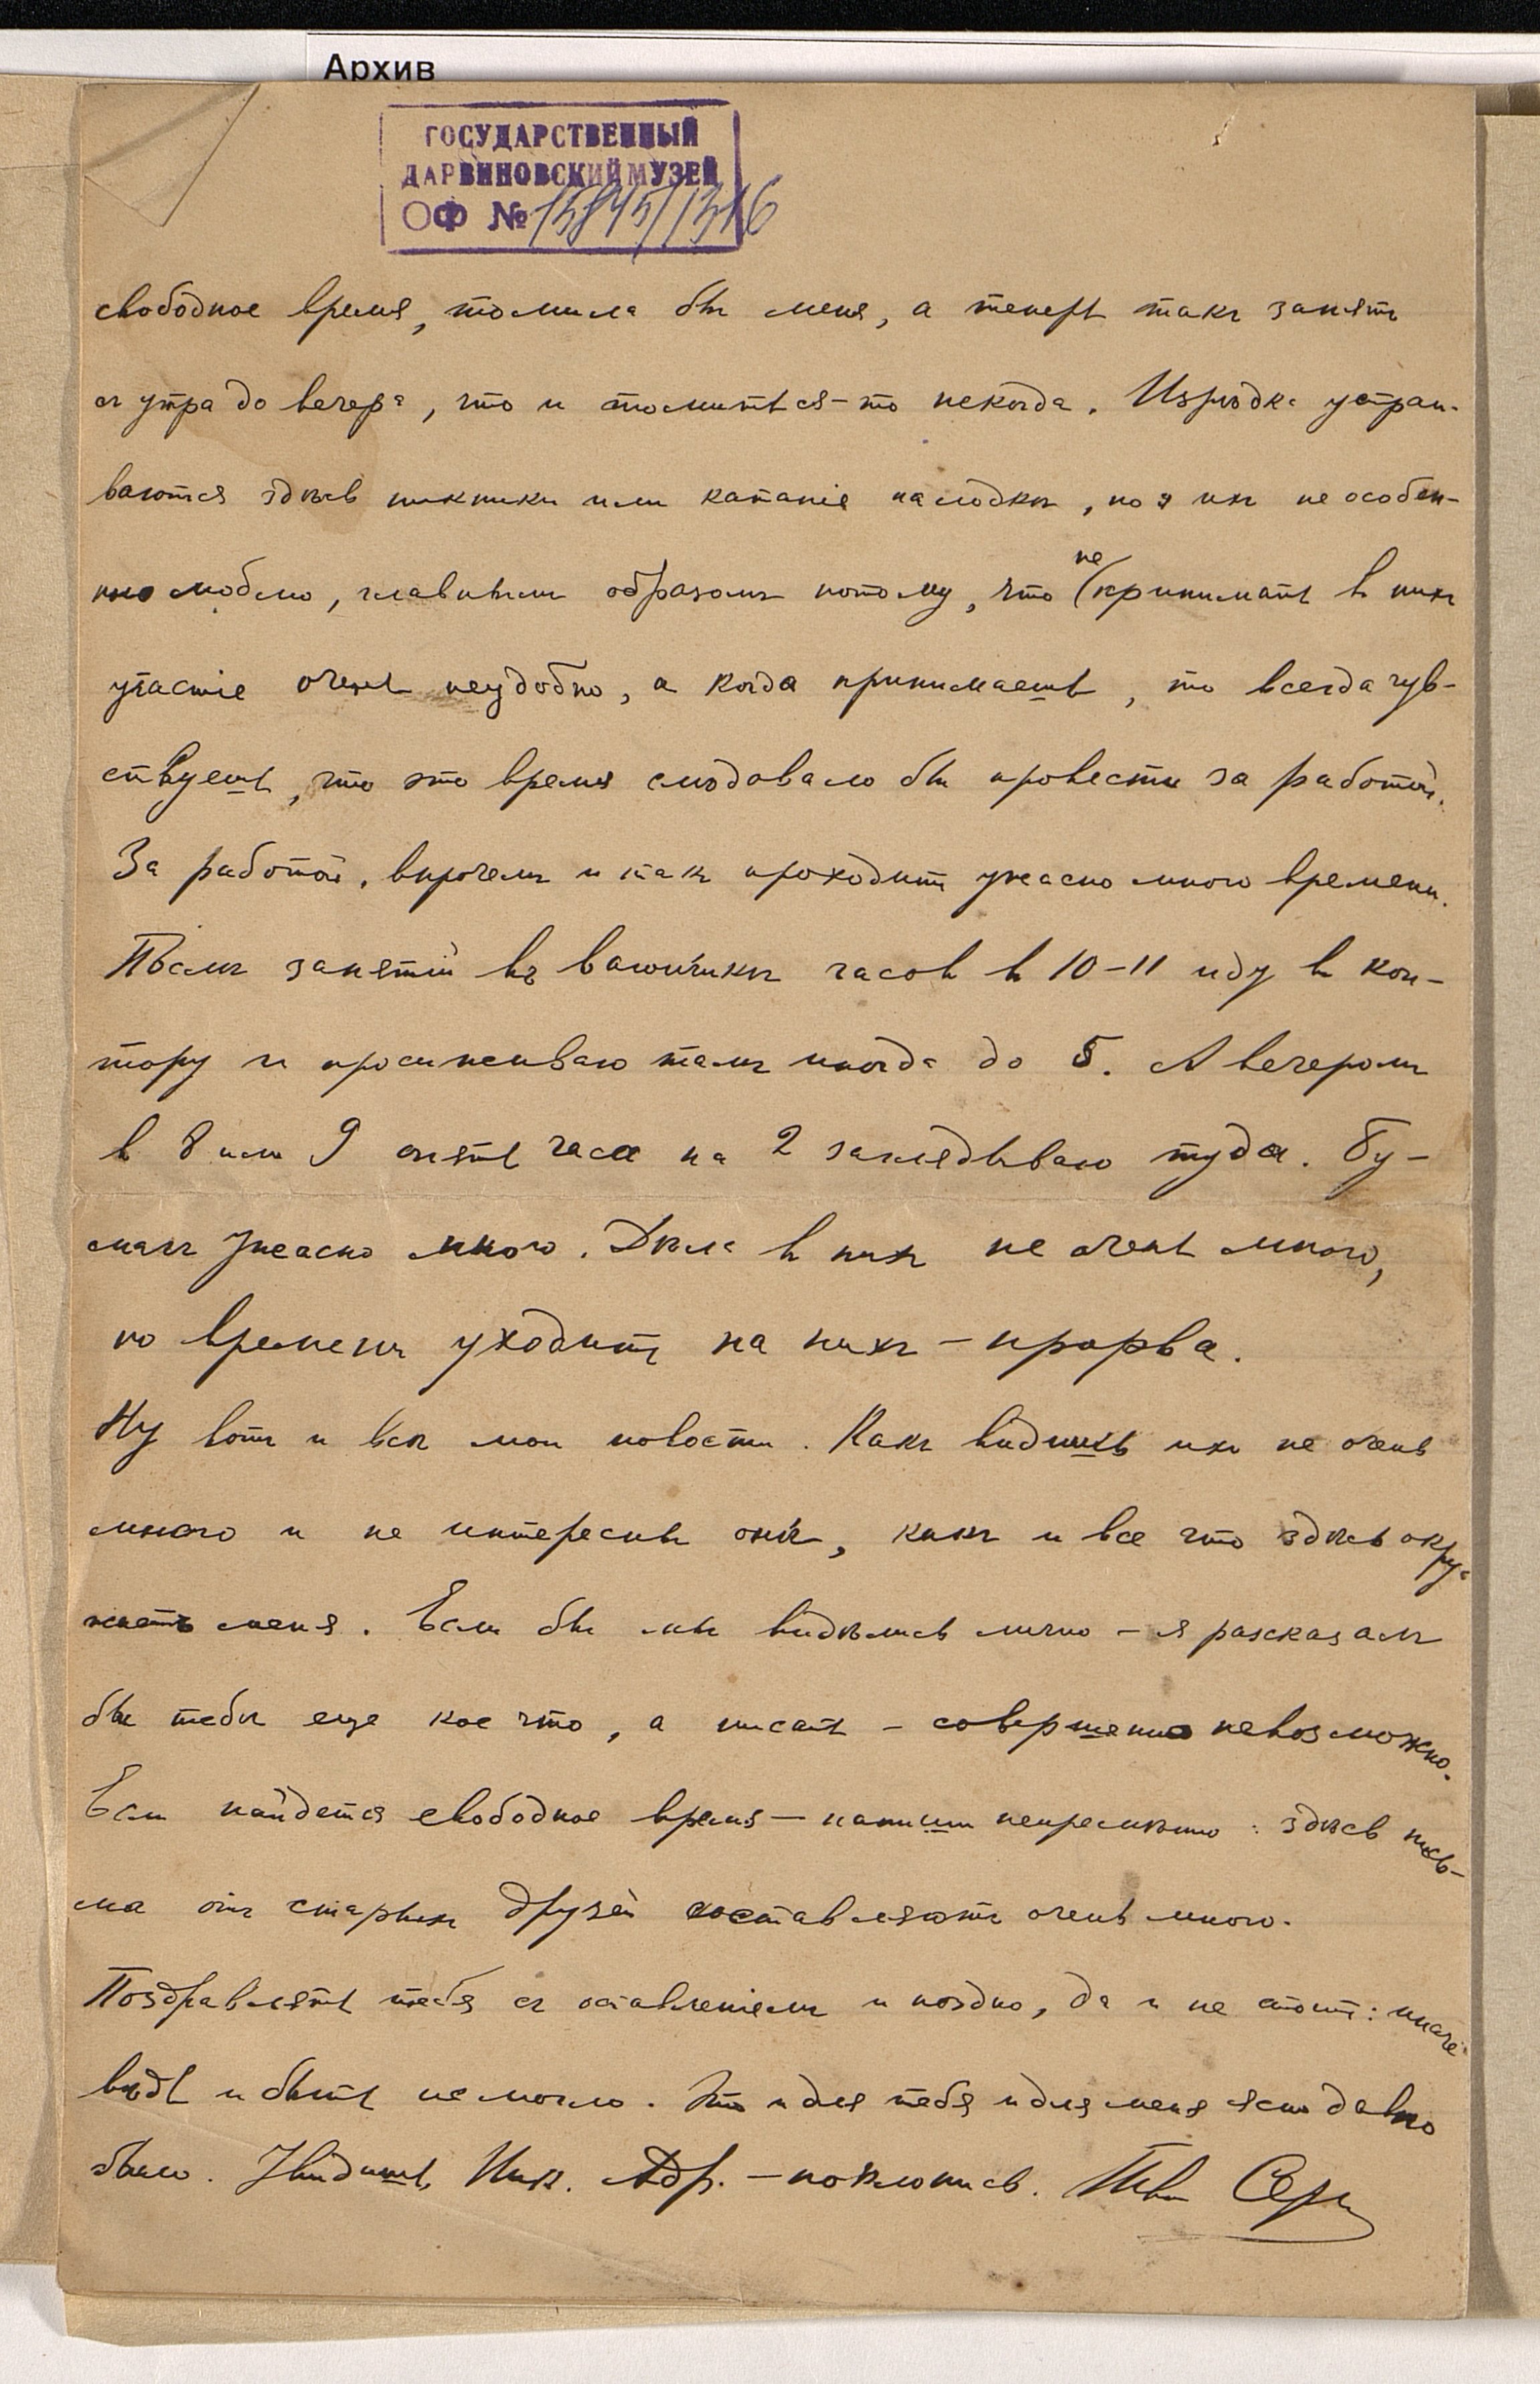 Архив
ГОСУДАРСТВЕННЫЙ
ДАРВИНОВСКИЙ МУЗЕЙ
ОФ № 15845/1316
свободное время, томила бы меня, а теперь такъ занятъ
съ утра до вечера, что и томиться-то некогда. Изрѣдка устраи-
ваются здѣсь пикники или катанія на лодкѣ, но я ихъ не особен-
но люблю, главнымъ образомъ потому, что не принимать в нихъ
участіе очень неудобно, а когда принимаешь, то всегда чув-
ствуешь, что это время слѣдовало бы провести за работой.
За работой, впрочемъ и такъ проходитъ ужасно много времени.
Послѣ занятій въ часов в 10-11 иду в кон-
тору и просиживаю тамъ иногда до 5. А вечеромъ
в 8 или 9 опять часа на 2 заглядываю туда. Бу-
магъ ужасно много. Дѣла в нихъ не очень много,
но времени уходитъ на нихъ - прорва.
Ну вотъ и всѣ мои новости. Какъ видишь ихъ не очень
много и не интересны онѣ, какъ и все что здѣсь окру-
жаетъ меня. Если бы мы видѣлись лично - я разсказалъ
бы тебѣ еще кое что, а писать - совершенно невозможно.
Если найдется свободное время - напиши непремѣнно: здѣсь пись-
ма отъ старыхъ друзей составляютъ очень много.
Поздравлять тебя съ оставленіемъ и поздно, да и не стоит: иначе
вѣдь и быть не могло. Это и для тебя и для меня ясно давно
было. Увидишь Ник. Адр. - поклонись. Твой Серг